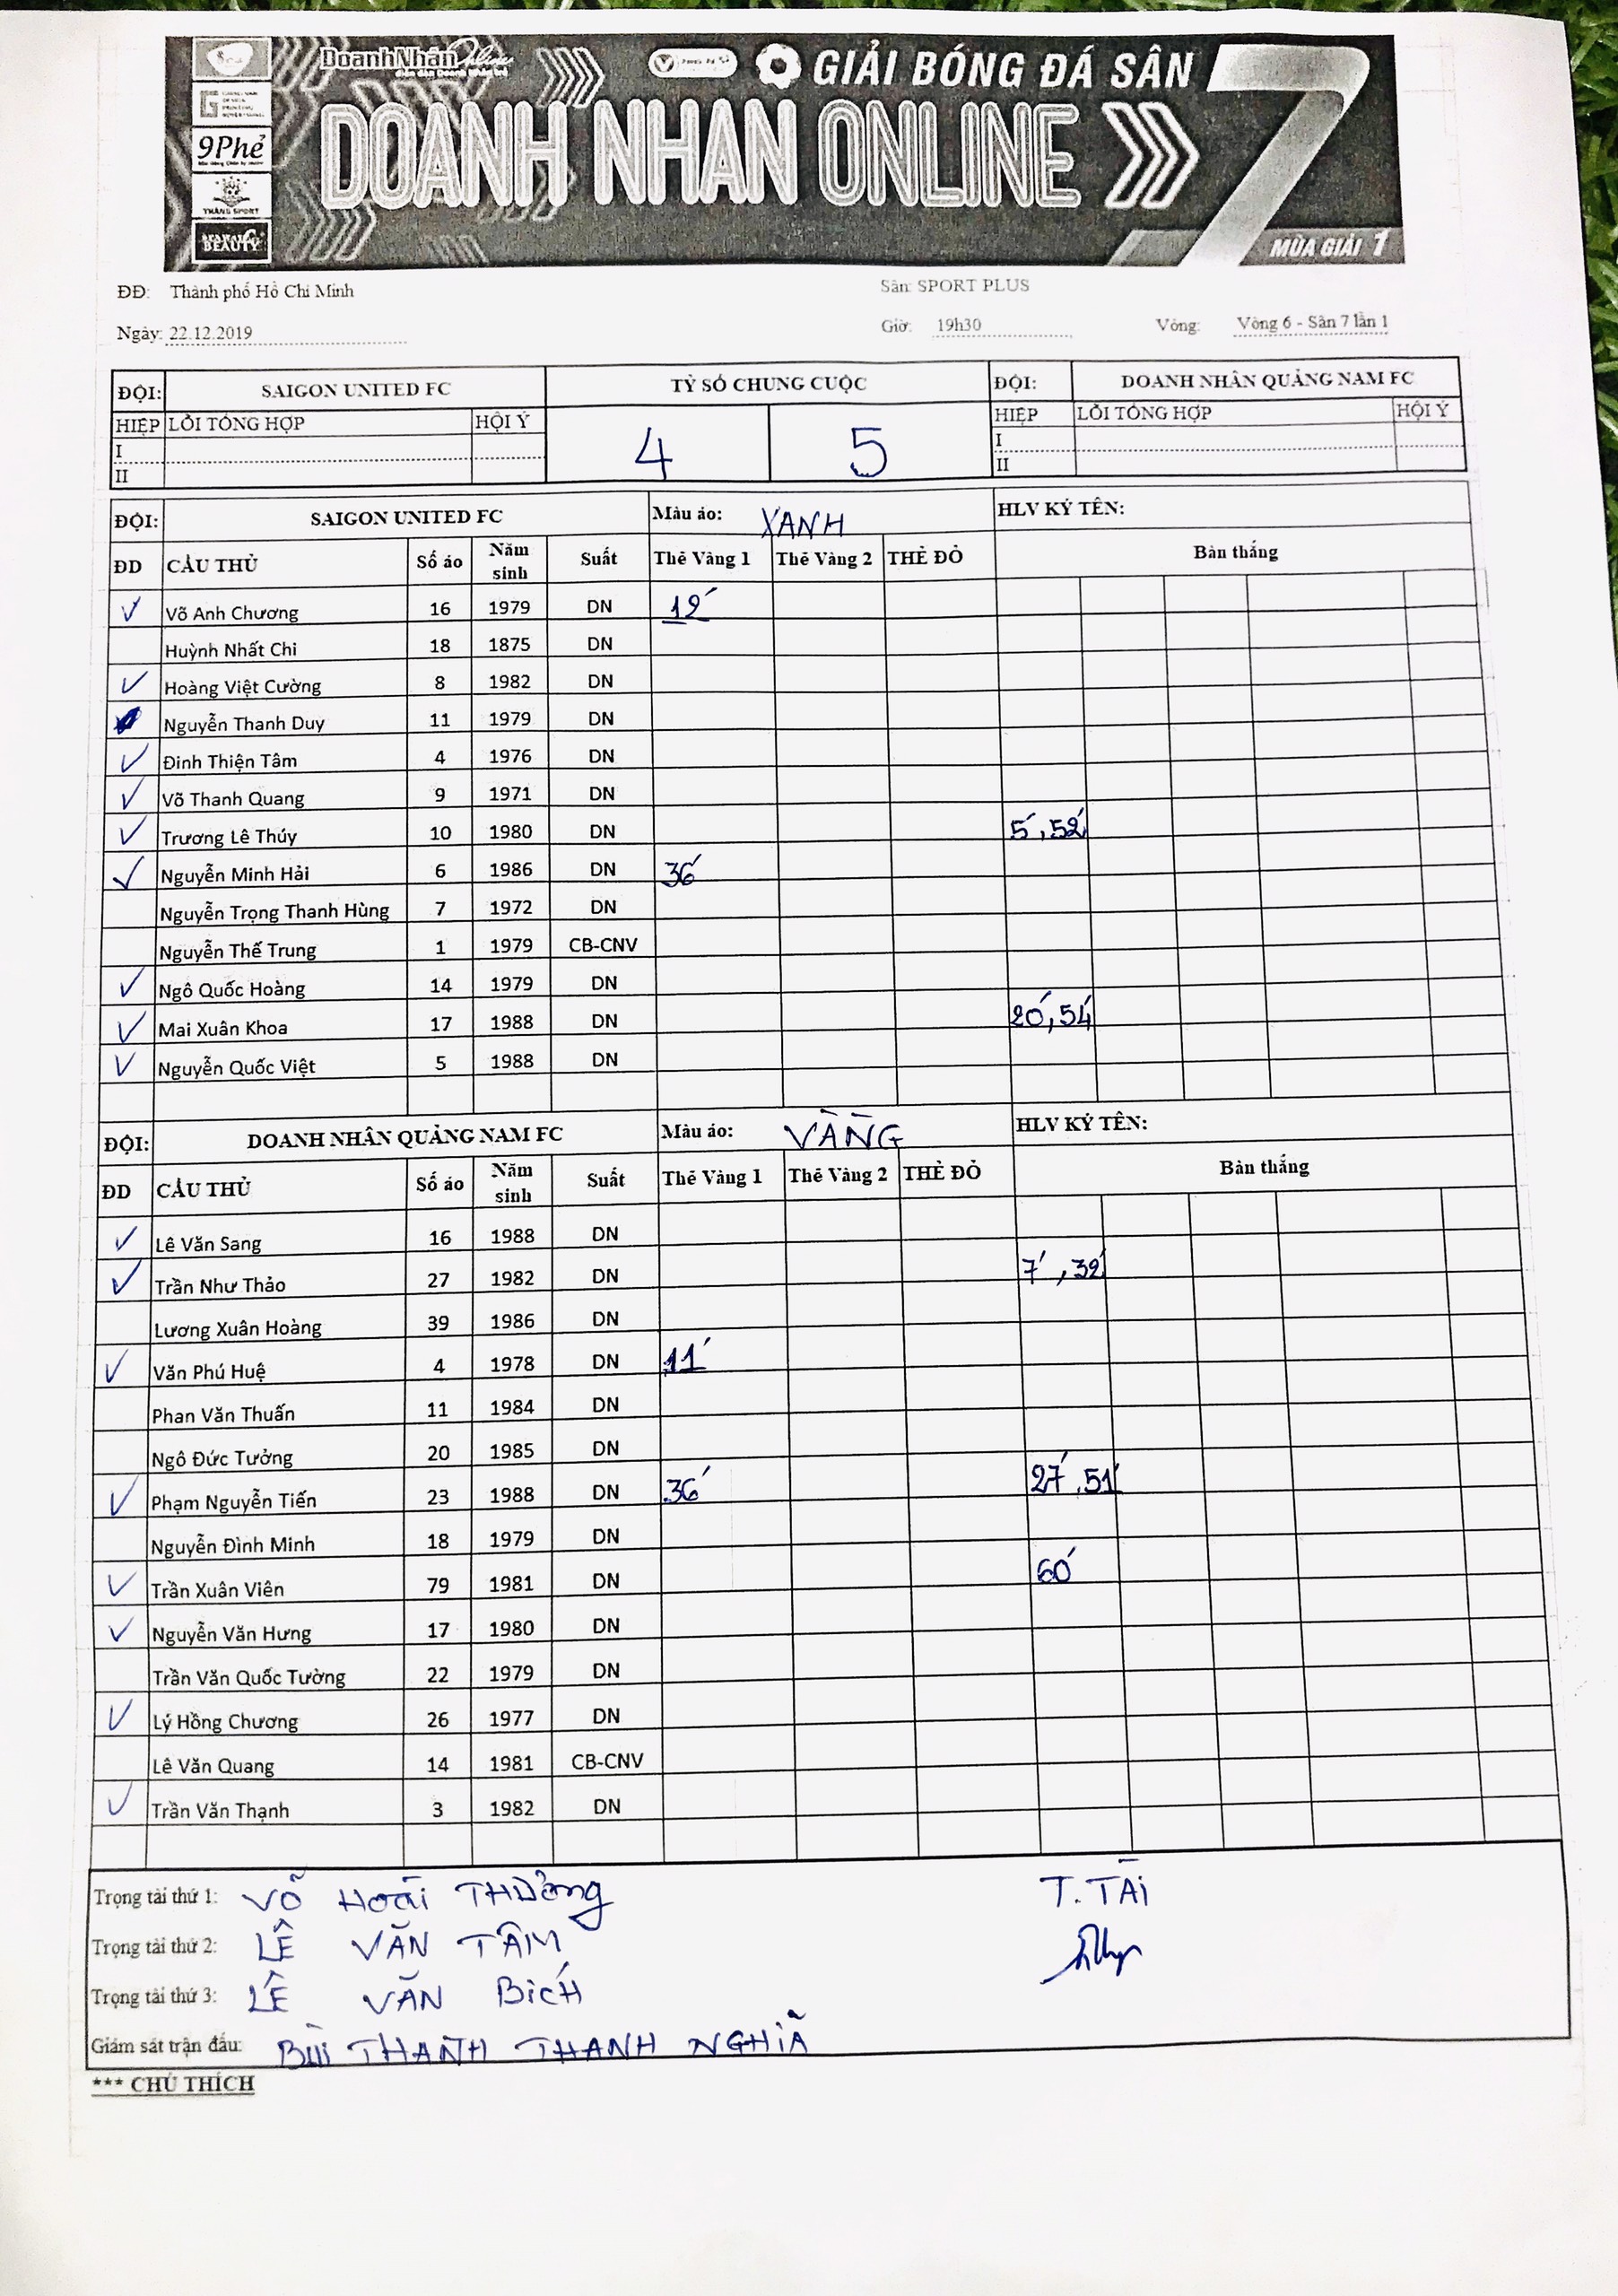 DoanhNhân Online
GIẢI BÓNG ĐÁ SÂN 7
DOANH NHÂN ONLINE
9Phẻ
THĂNG SPORT
BEAUTY
MÙA GIẢI 1
ĐĐ: Thành phố Hồ Chí Minh
Sân: SPORT PLUS
Ngày: 22.12.2019
Giờ: 19h30
Vòng: Vòng 6 - Sân 7 lần 1
ĐỘI: SAIGON UNITED FC TỶ SỐ CHUNG CUỘC ĐỘI: DOANH NHÂN QUẢNG NAM FC
HIỆP LỖI TỔNG HỢP HỘI Ý 4 5 HIỆP LỖI TỔNG HỢP HỘI Ý
I I
II II
ĐỘI: SAIGON UNITED FC Màu áo: XANH HLV KÝ TÊN:
ĐD CẦU THỦ Số áo Năm sinh Suất Thẻ Vàng 1 Thẻ Vàng 2 THẺ ĐỎ Bàn thắng
Võ Anh Chương 16 1979 DN 12'
Huỳnh Nhất Chi 18 1875 DN
Hoàng Việt Cường 8 1982 DN
Nguyễn Thanh Duy 11 1979 DN
Đinh Thiện Tâm 4 1976 DN
Võ Thanh Quang 9 1971 DN
Trương Lê Thúy 10 1980 DN 5', 52'
Nguyễn Minh Hải 6 1986 DN 36'
Nguyễn Trọng Thanh Hùng 7 1972 DN
Nguyễn Thế Trung 1 1979 CB-CNV
Ngô Quốc Hoàng 14 1979 DN
Mai Xuân Khoa 17 1988 DN 20', 54'
Nguyễn Quốc Việt 5 1988 DN
ĐỘI: DOANH NHÂN QUẢNG NAM FC Màu áo: VÀNG HLV KÝ TÊN:
ĐD CẦU THỦ Số áo Năm sinh Suất Thẻ Vàng 1 Thẻ Vàng 2 THẺ ĐỎ Bàn thắng
Lê Văn Sang 16 1988 DN
Trần Như Thảo 27 1982 DN 7', 32'
Lương Xuân Hoàng 39 1986 DN
Văn Phú Huệ 4 1978 DN 11'
Phan Văn Thuấn 11 1984 DN
Ngô Đức Tưởng 20 1985 DN
Phạm Nguyễn Tiến 23 1988 DN 36' 27', 51'
Nguyễn Đình Minh 18 1979 DN
Trần Xuân Viên 79 1981 DN 60'
Nguyễn Văn Hưng 17 1980 DN
Trần Văn Quốc Tường 22 1979 DN
Lý Hồng Chương 26 1977 DN
Lê Văn Quang 14 1981 CB-CNV
Trần Văn Thạnh 3 1982 DN
Trọng tài thứ 1: VÕ HOÀI THƯỞNG T. TÀI
Trọng tài thứ 2: LÊ VĂN TÂM
Trọng tài thứ 3: LÊ VĂN BÍCH
Giám sát trận đấu: BÙI THANH THANH NGHĨA
*** CHÚ THÍCH